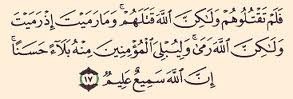 فَلَمْ تَقْتُلُوهُمْ وَلَٰكِنَّ ٱللَّهَ قَتَلَهُمْ ۚ وَمَا رَمَيْتَ إِذْ رَمَيْتَ
وَلَٰكِنَّ ٱللَّهَ رَمَىٰ ۚ وَلِيُبْلِيَ ٱلْمُؤْمِنِينَ مِنْهُ بَلَآءً حَسَنًا ۚ
إِنَّ ٱللَّهَ سَمِيعٌ عَلِيمٌ ١٧